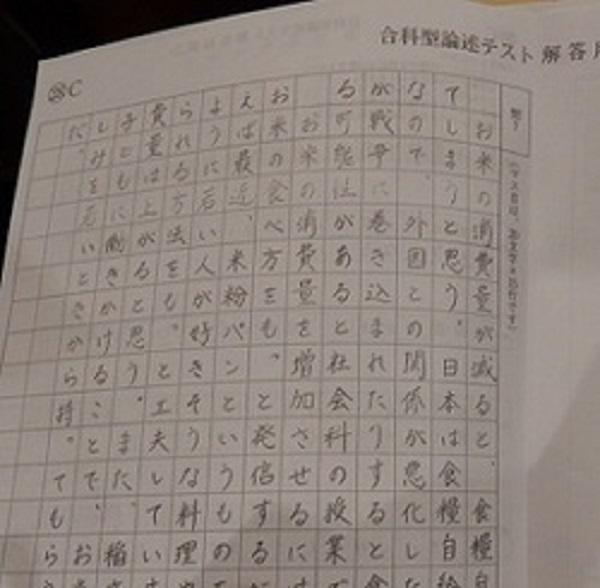 合科型論述テスト 解答用
㉘C
問7
お米の消費量が減ると、食糧自
てしまうと思う。日本は食糧自給
なので、外国との関係が悪化し
が戦争に巻き込まれたりすると食
る可能性があると社会科の授業で
お米の消費量を増加させるには
お米の食べ方をもっと発信するだ
えば最近、米粉パンというもの
ように若い人が好きそうな料理
られる方法をもっと工夫してい
費量は上がると思う。また、稲
子どもに働きかけることで、お
しみを若いときから持ってもら